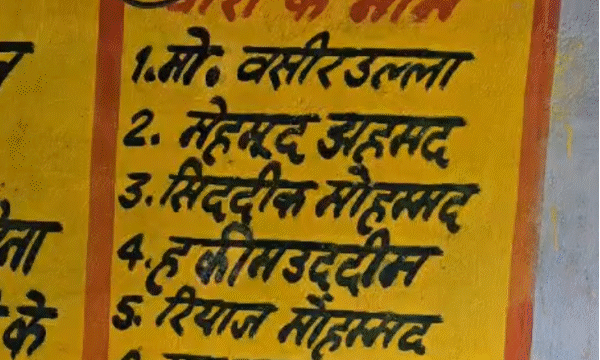 के नाम
1. मो. वसीरउल्ला
2. मेहमूद अहमद
3. सिददीक मोहम्मद
4. हकीमउददीम
5. रियाज मोंहम्मद